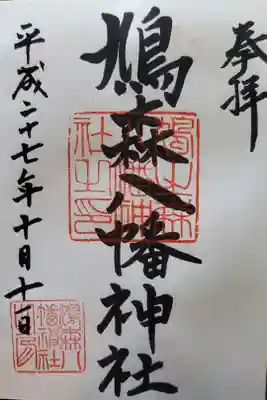 奉拝
鳩森八幡神社
平成二十七年十月十日